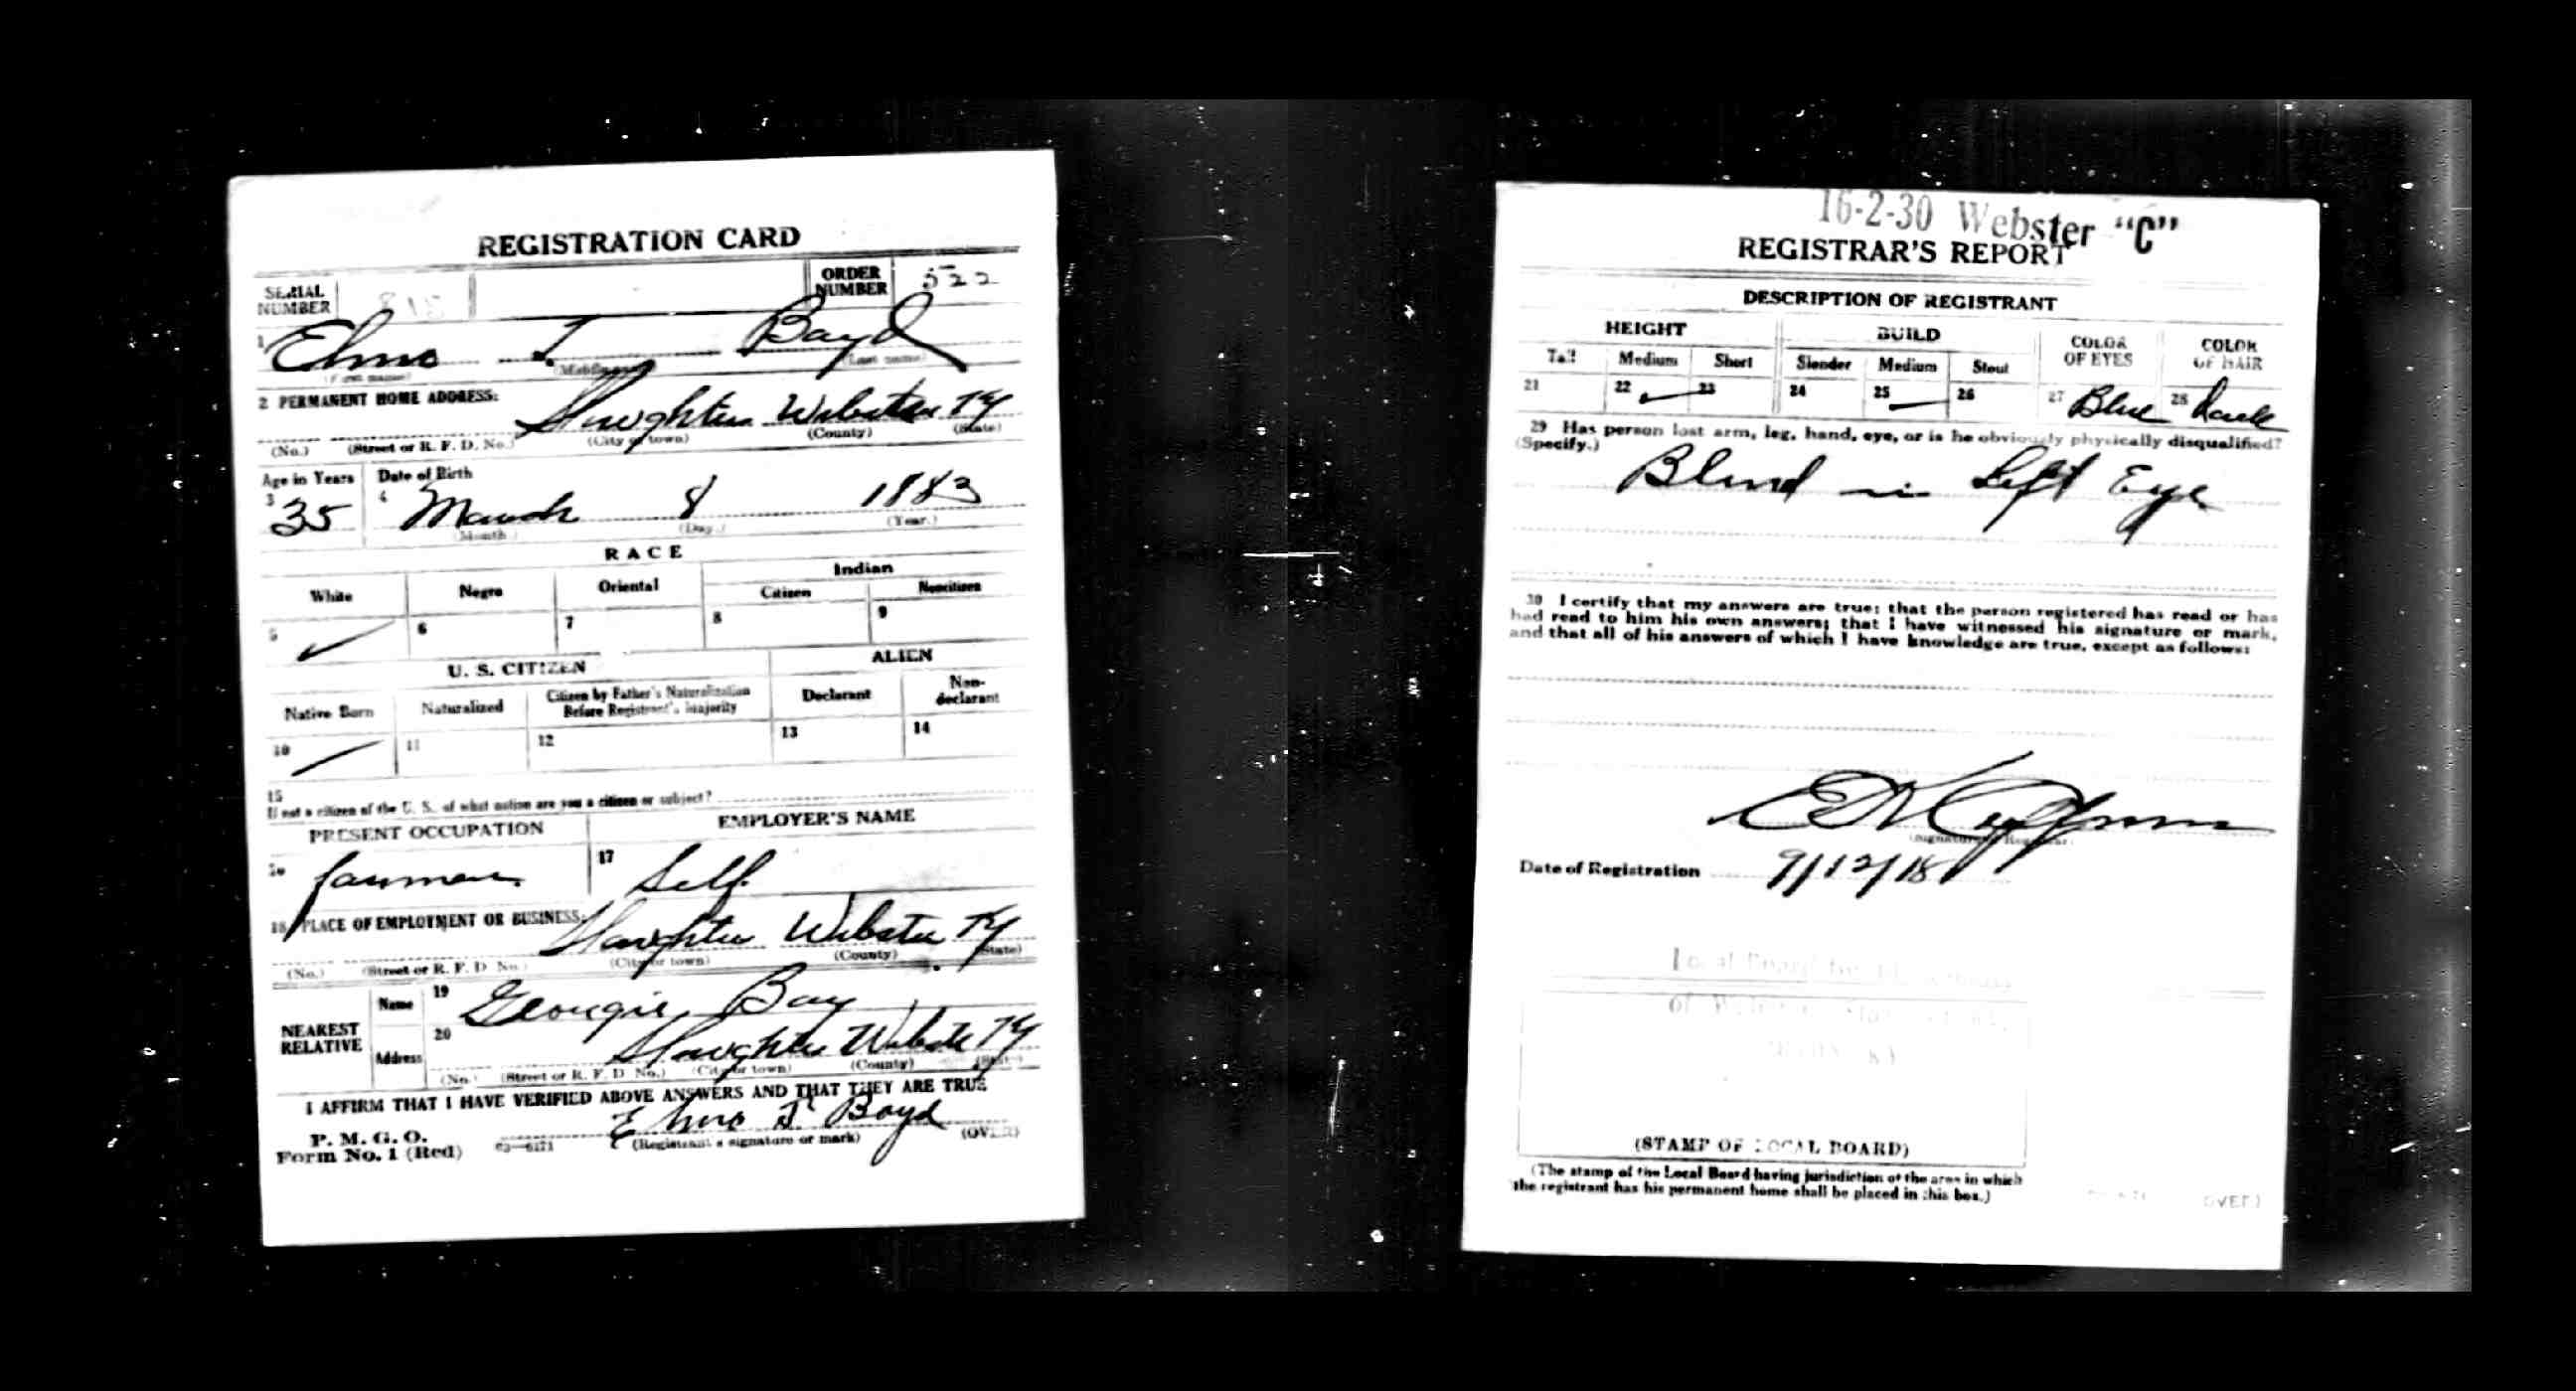 REGISTRATION CARD
SERIAL NUMBER
ORDER NUMBER 522
1 Elmo T. Boyd
(First name) (Middle name) (Last name)
2 PERMANENT HOME ADDRESS: Slaughters Webster Ky
(No.) (Street or R. F. D. No.) (City or town) (County) (State)
Age in Years Date of Birth
3 35 4 March 8 1883
(Month) (Day.) (Year.)
RACE
White Negro Oriental Indian
Citizen Noncitizen
5 6 7 8 9
U. S. CITIZEN ALIEN
Native Born Naturalized Citizen by Father's Naturalization Before Registrant's Majority Declarant Non-declarant
10 11 12 13 14
15
If not a citizen of the U. S., of what nation are you a citizen or subject?
PRESENT OCCUPATION EMPLOYER'S NAME
16 farmer 17 Self
18 PLACE OF EMPLOYMENT OR BUSINESS: Slaughters Webster Ky
(No.) (Street or R. F. D. No.) (City or town) (County) (State)
NEAREST RELATIVE
Name 19 Georgie
Address 20 Slaughters Webster Ky
(No.) (Street or R. F. D. No.) (City or town) (County) (State)
I AFFIRM THAT I HAVE VERIFIED ABOVE ANSWERS AND THAT THEY ARE TRUE
P. M. G. O.
Form No. 1 (Red) 03—6171 Elmo T Boyd
(Registrant's signature or mark) (OVER)
16-2-30 Webster "C"
REGISTRAR'S REPORT
DESCRIPTION OF REGISTRANT
HEIGHT BUILD COLOR OF EYES COLOR OF HAIR
Tall Medium Short Slender Medium Stout
21 22 23 24 25 26 27 Blue 28 Dark
29 Has person lost arm, leg, hand, eye, or is he obviously physically disqualified?
(Specify.)
Blind in Left Eye
30 I certify that my answers are true; that the person registered has read or has
had read to him his own answers; that I have witnessed his signature or mark,
and that all of his answers of which I have knowledge are true, except as follows:
(Signature of Registrar)
Date of Registration 9/12/18
Local Board for
of
(STAMP OF LOCAL BOARD)
(The stamp of the Local Board having jurisdiction of the area in which
the registrant has his permanent home shall be placed in this box.)
(OVER)